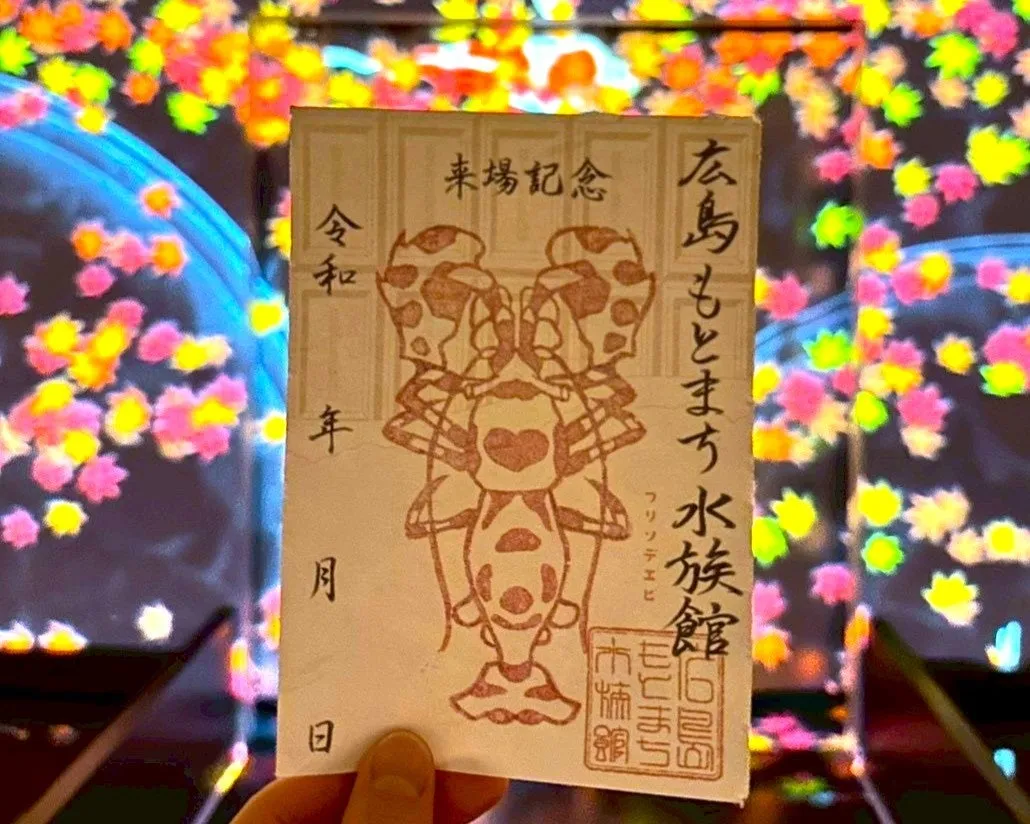 来場記念
広島もとまち水族館
フリソデエビ
令和
年
月
日
広島
もとまち
水族館